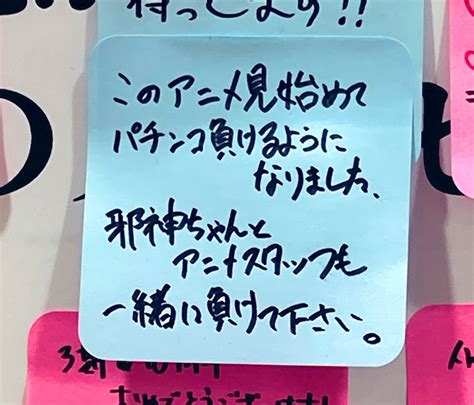 待ってます!!
このアニメ見始めて
パチンコ負けるように
なりました、
邪神ちゃんと
アニメスタッフも
一緒に負けて下さい。
おめでとうございます